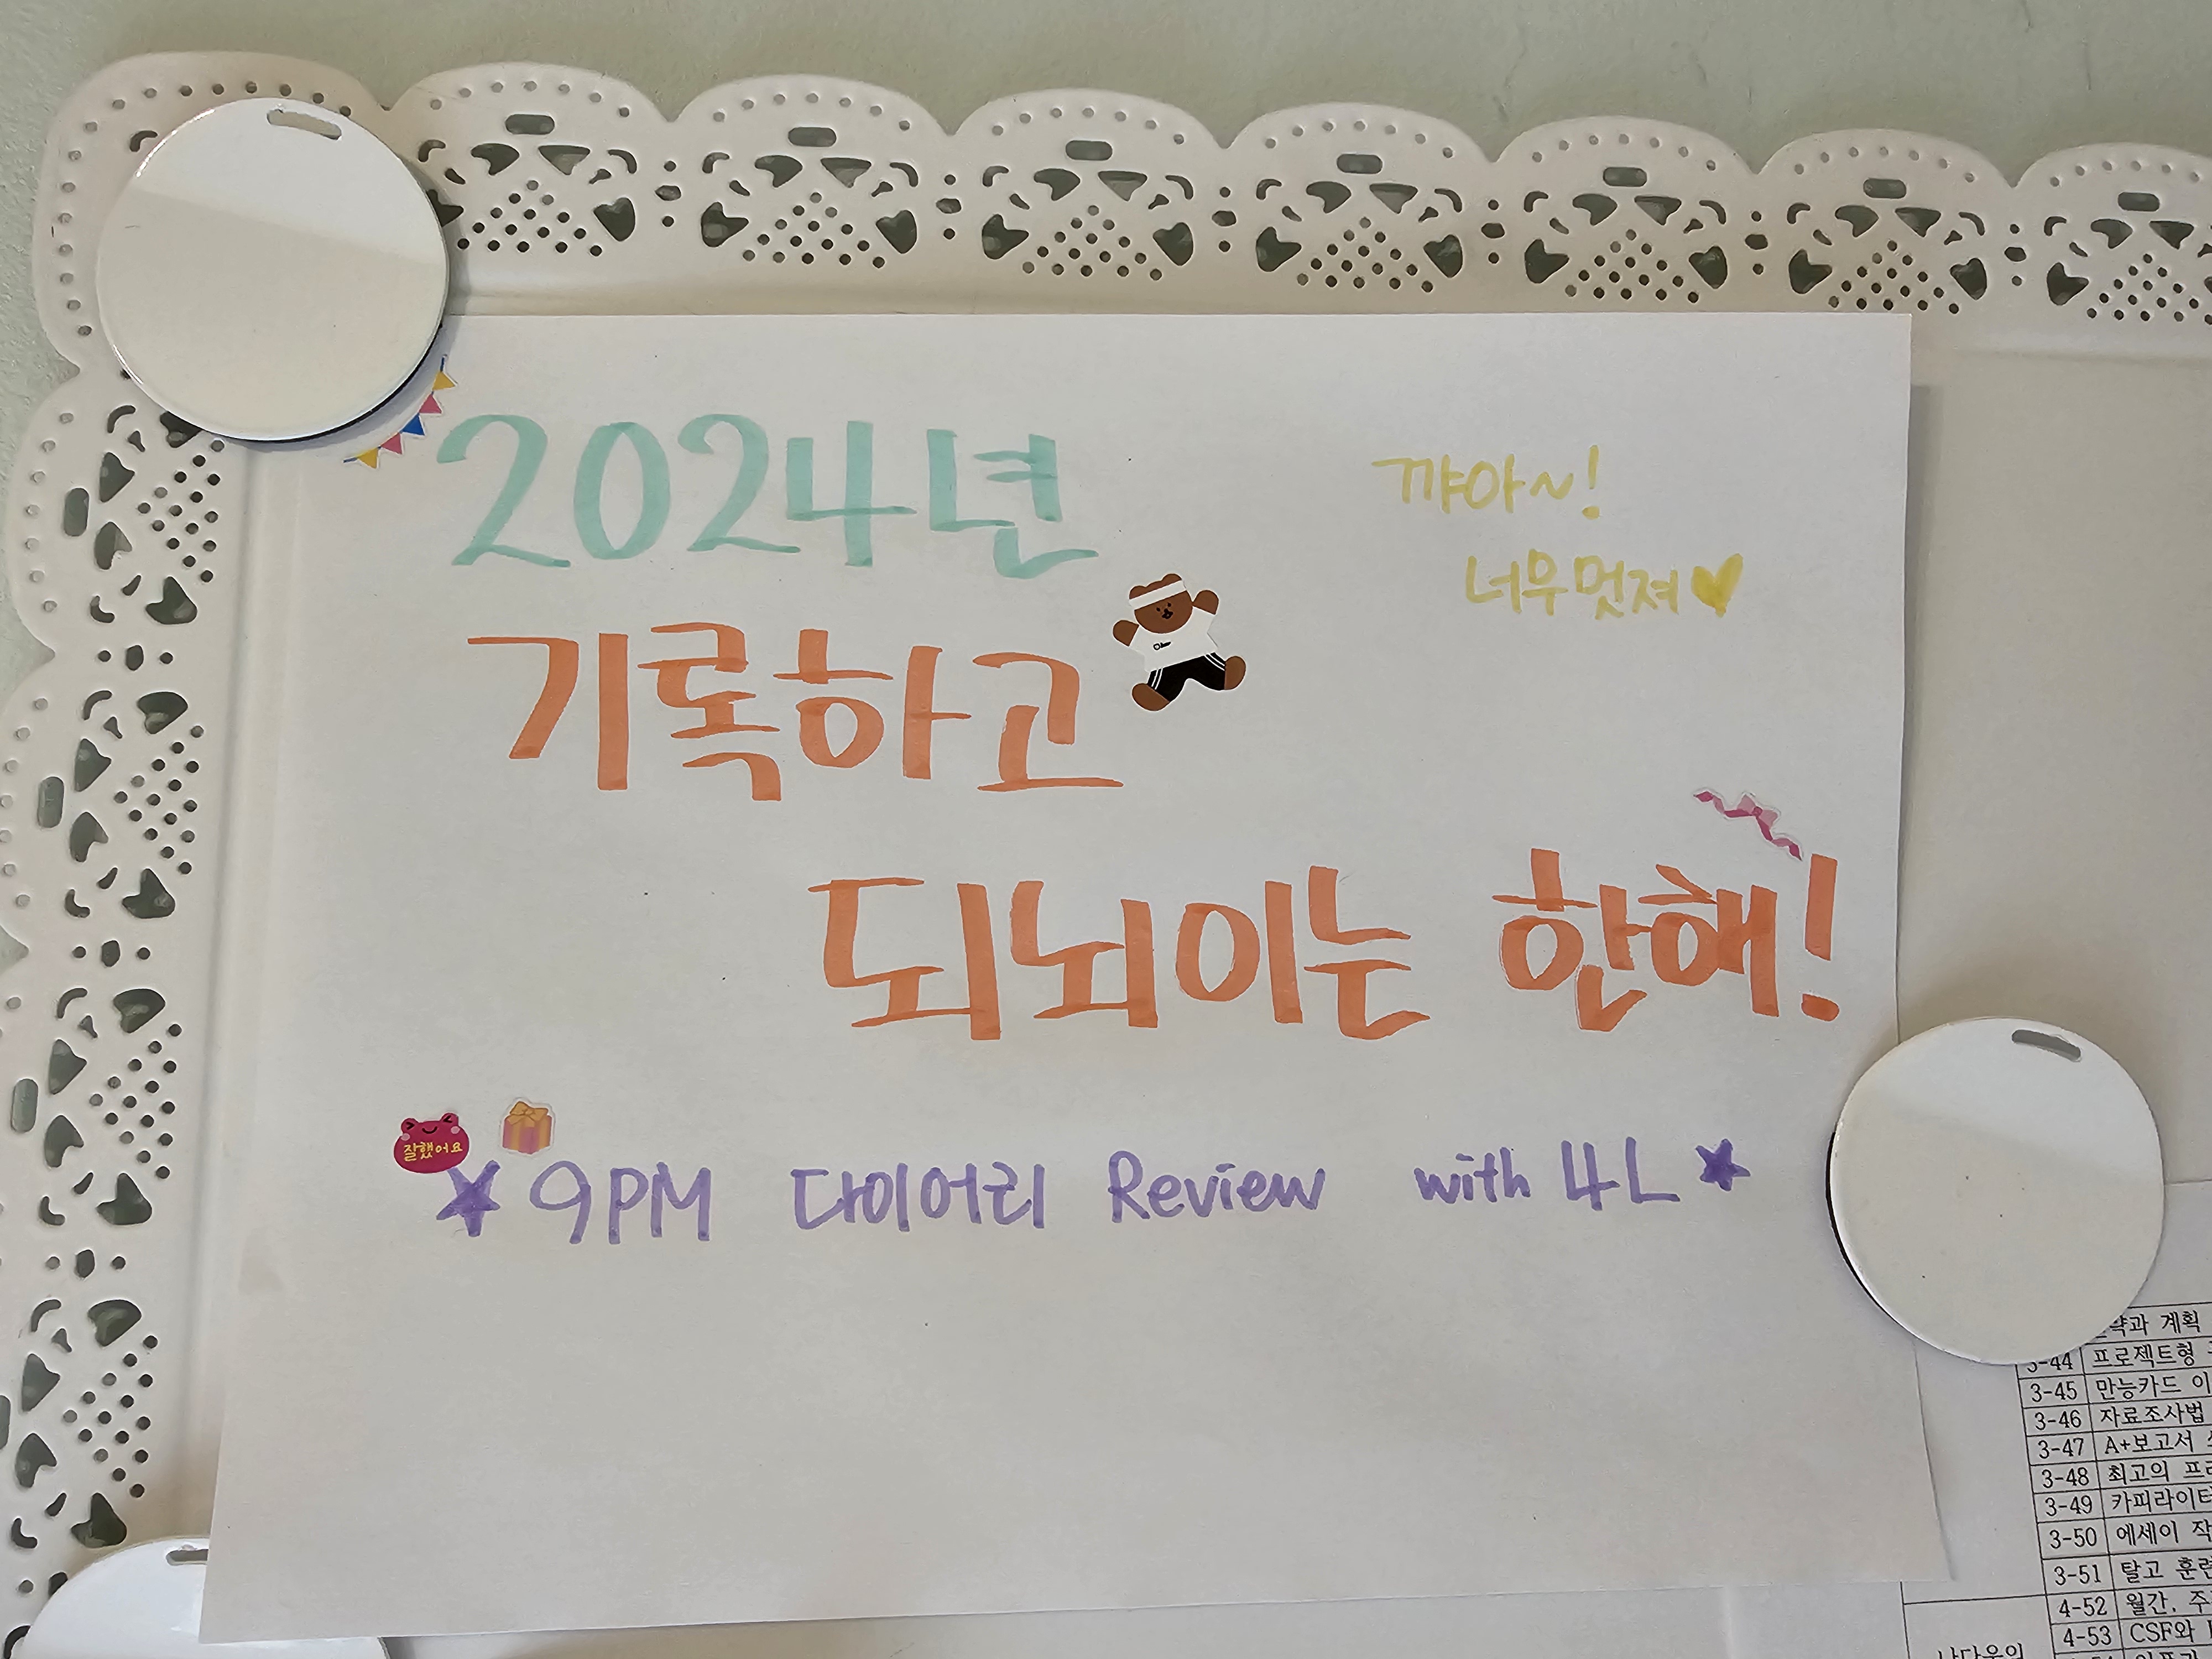 2024년
꺄아~!
너무 멋져♥
기록하고
되뇌이는 한해!
잘했어요
★ 9PM 다이어리 Review with 4L ★
계획
3-44 프로젝트형
3-45 만능카드
3-46 자료조사법
3-47 A+보고서
3-48 최고의
3-49 카피라이터
3-50 에세이
3-51 탈고
4-52 월간, 
4-53 CSF와